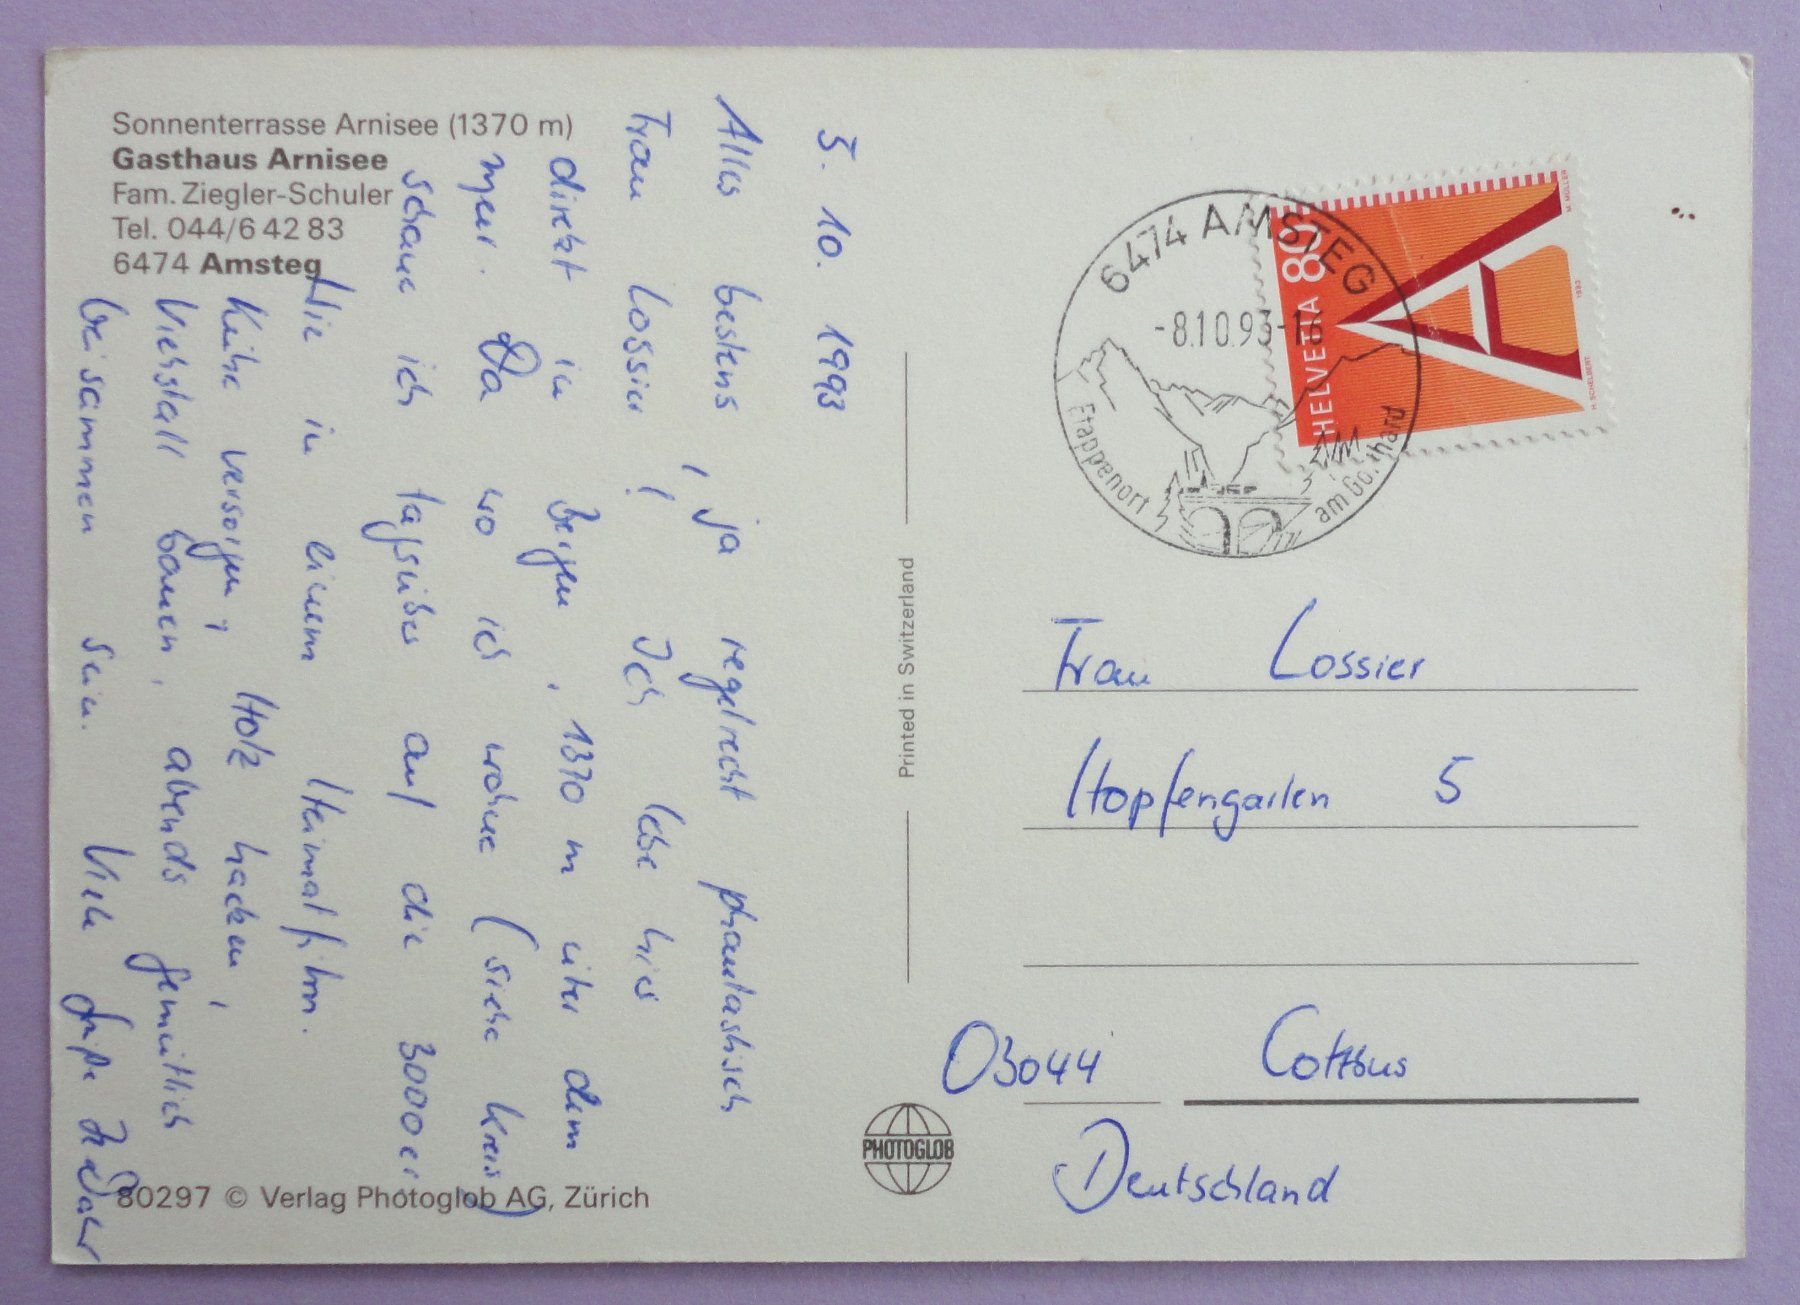 Sonnenterrasse Arnisee (1370 m)
Gasthaus Arnisee
Fam. Ziegler-Schuler
Tel. 044/6 42 83
6474 Amsteg
5. 10. 1993
Alles bestens, ja regelrecht phantastisch
Frau Lossier! Ich lebe hier
direkt in Bergen, 1370 m über dem
Meer. Da wo ich wohne (siehe Kreis)
schaue ich tagsüber auf die 3000er
Wie in einem Heimatfilm.
Kühe versorgen, Holz hacken,
Viehstall bauen, abends gemütlich
beisammen sein. Viele Grüße
80297 © Verlag Photoglob AG, Zürich
Printed in Switzerland
PHOTOGLOB
6474 AMSTEG
-8.10.93-18
Etappenort am Gotthard
HELVETIA 80
M. MÜLLER
1993
H. SCHELBERT
Frau Lossier
Hopfengarten 5
03044 Cottbus
Deutschland